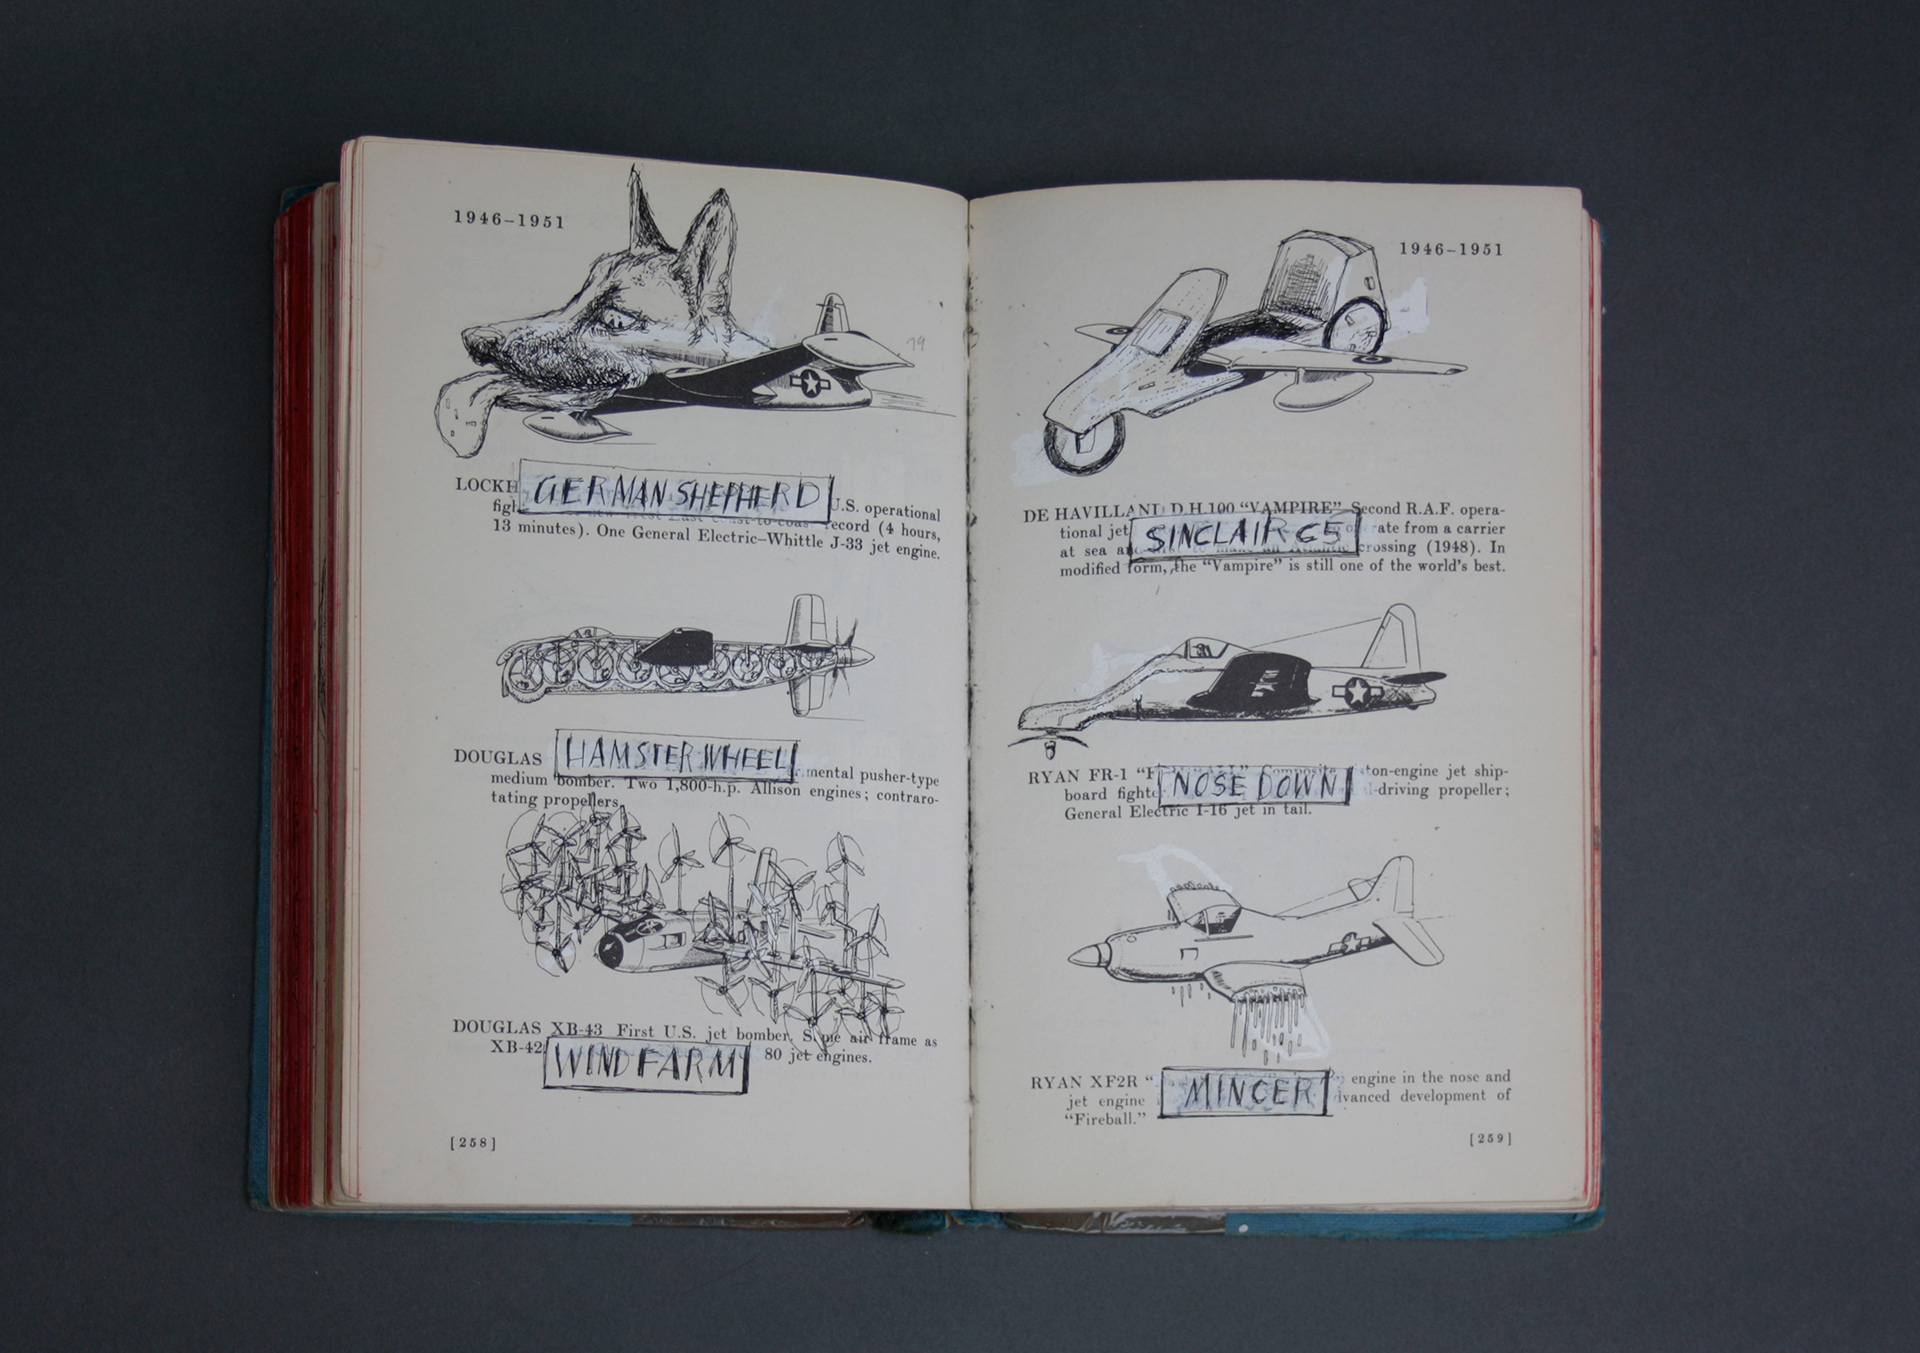 1946–1951
19
LOCKH GERMAN SHEPHERD U.S. operational
figh record (4 hours,
13 minutes). One General Electric–Whittle J-33 jet engine.
DOUGLAS HAMSTER WHEEL mental pusher-type
medium bomber. Two 1,800-h.p. Allison engines; contraro-
tating propellers.
DOUGLAS XB-43 First U.S. jet bomber. Same air frame as
XB-42 WIND FARM 80 jet engines.
[258]
1946–1951
DE HAVILLAND D.H.100 “VAMPIRE” Second R.A.F. opera-
tional jet SINCLAIR C5 operate from a carrier
at sea and to make an Atlantic crossing (1948). In
modified form, the “Vampire” is still one of the world’s best.
RYAN FR-1 Composite ton-engine jet ship-
board fighte NOSE DOWN l-driving propeller;
General Electric I-16 jet in tail.
RYAN XF2R “ MINCER engine in the nose and
jet engine dvanced development of
“Fireball.”
[259]